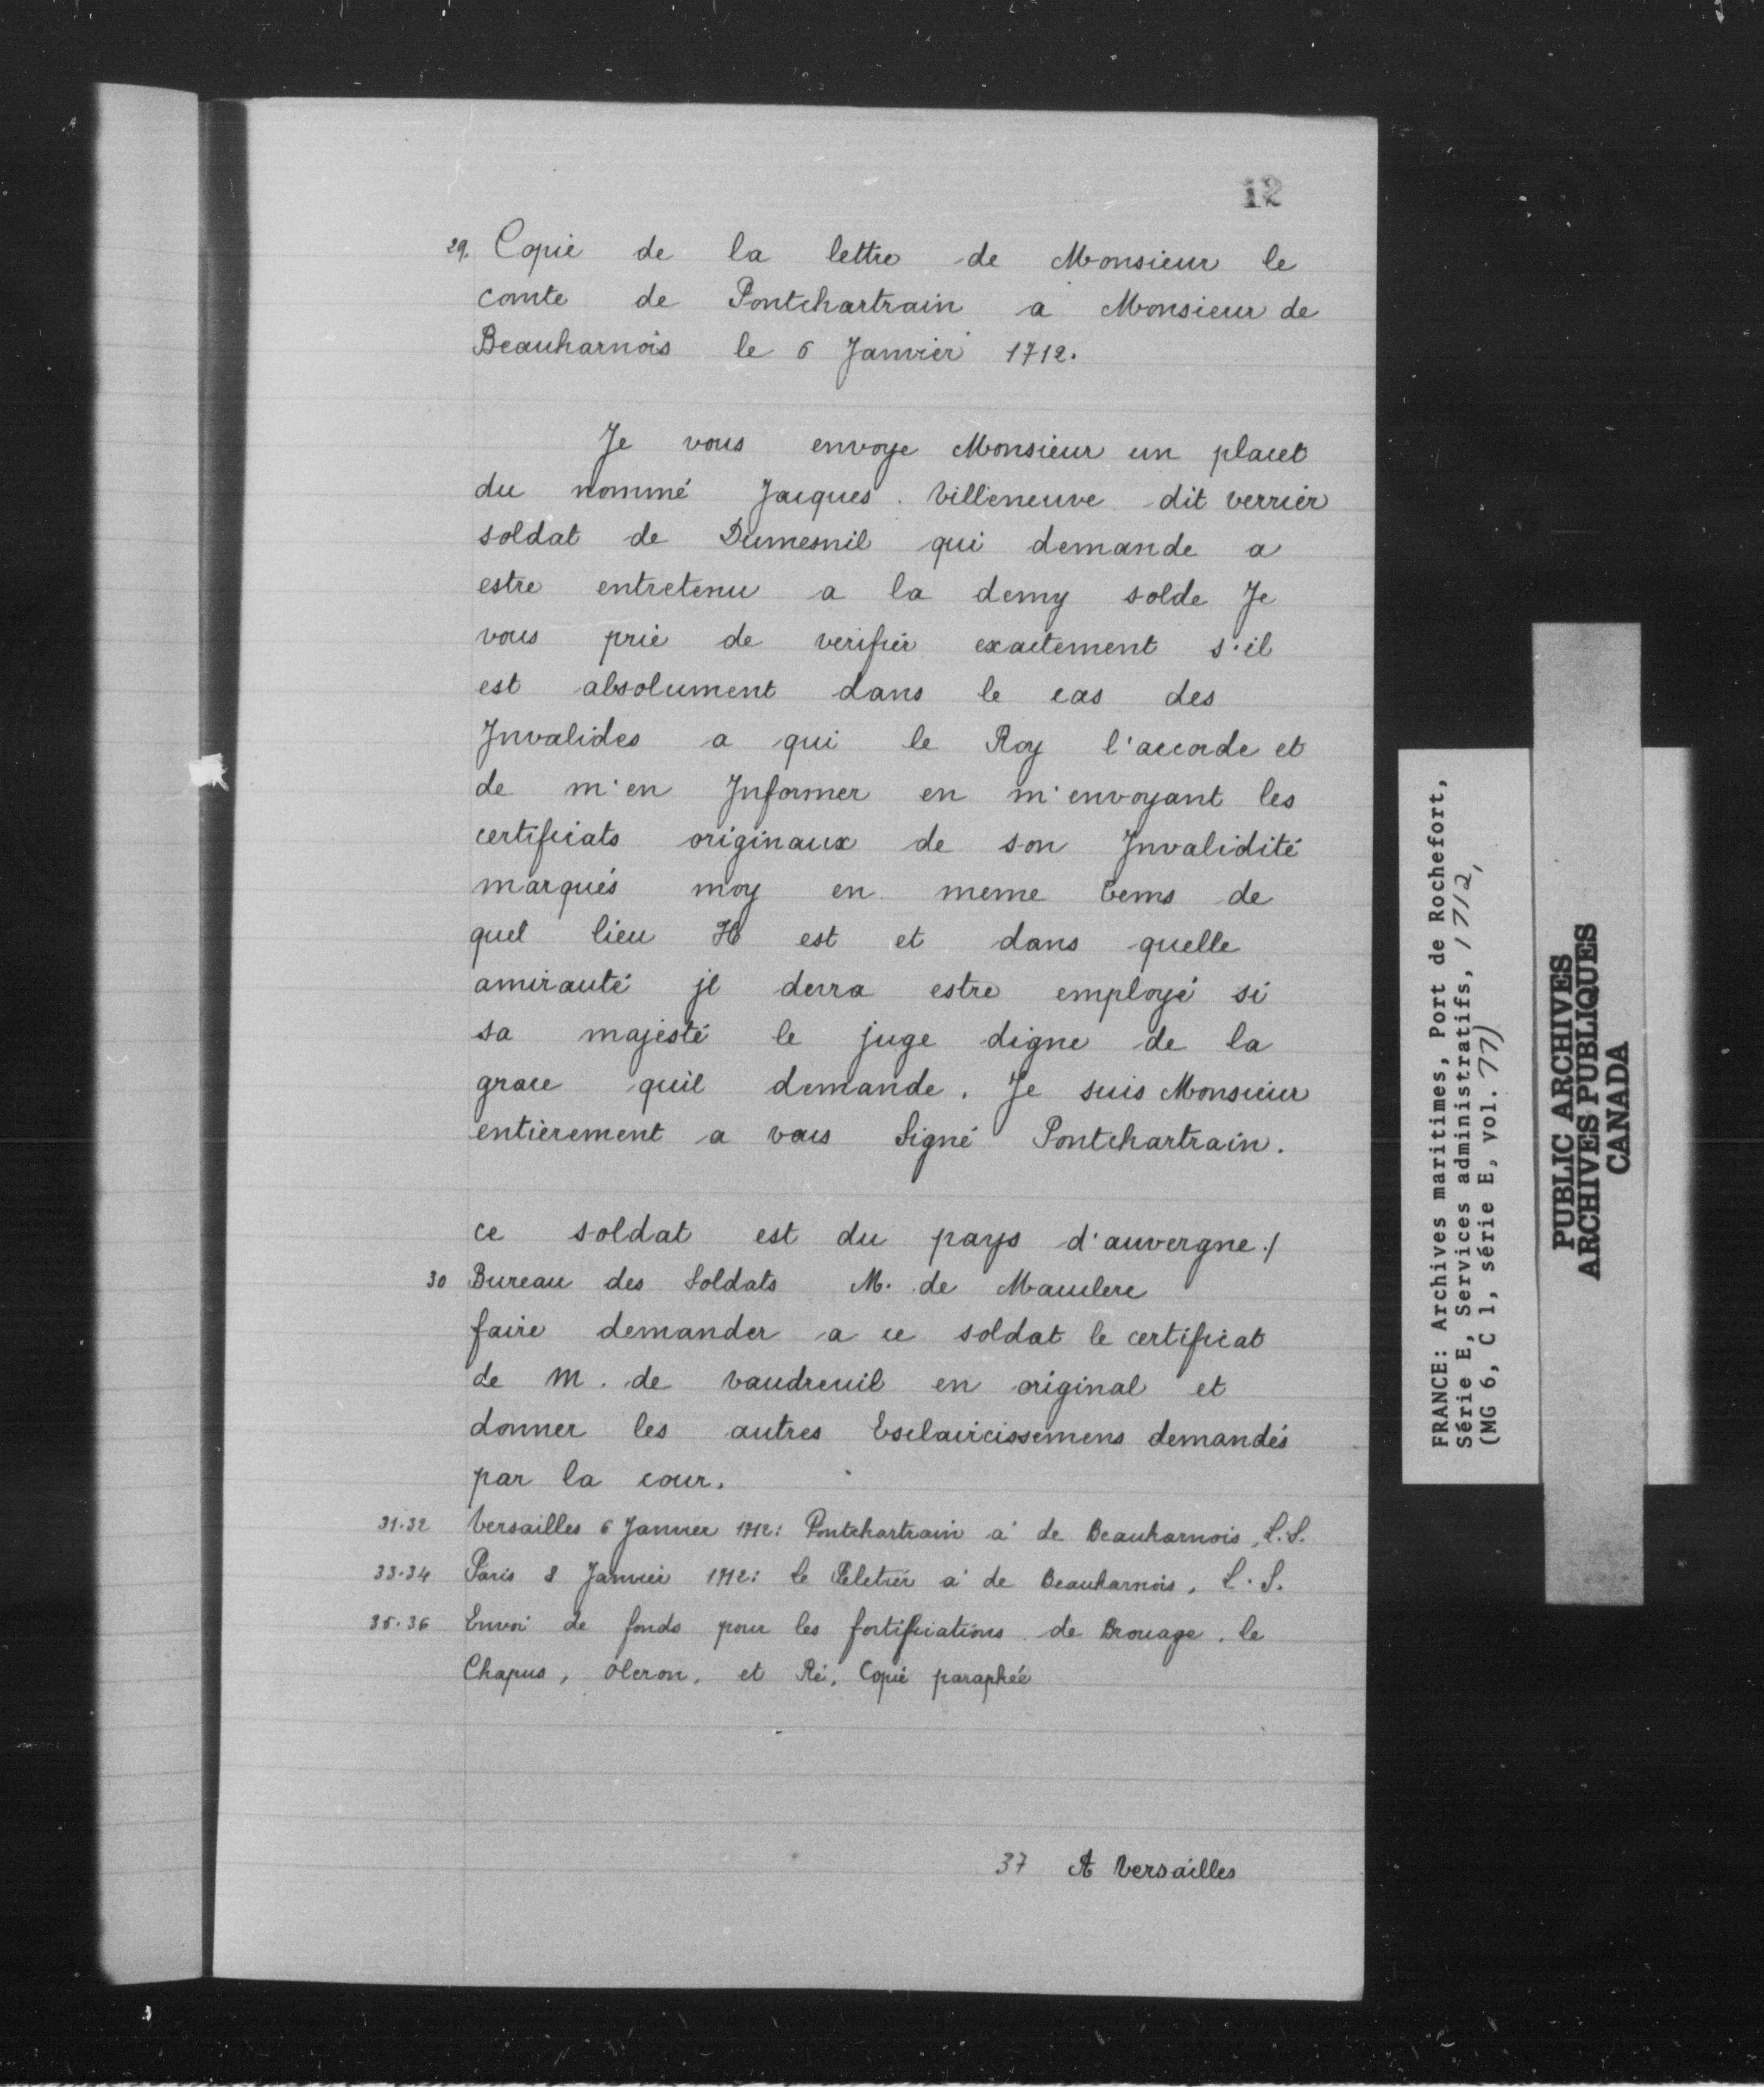 12
29. Copie de la lettre de Monsieur le
comte de Pontchartrain a Monsieur de
Beauharnois le 6 Janvier 1712.
Je vous envoye Monsieur un placet
du nommé Jacques Villeneuve dit verrier
soldat de Dumesnil qui demande a
estre entretenu a la demy solde Je
vous prie de verifier exactement s'il
est absolument dans le cas des
Invalides a qui le Roy l'accorde et
de m'en Informer en m'envoyant les
certificats originaux de son Invalidité
marqués moy en meme tems de
quel lieu Il est et dans quelle
amirauté jl devra estre employé si
sa majesté le juge digne de la
grace quil demande. Je suis Monsieur
entièrement a vous Signé Pontchartrain.
ce soldat est du pays d'auvergne./
30 Bureau des Soldats M. de Mauclere
faire demander a ce soldat le certificat
de M. de Vaudreuil en original et
donner les autres Esclaircissemens demandés
par la cour.
31-32 Versailles 6 Janvier 1712: Pontchartrain à de Beauharnois, L.S.
33-34 Paris 8 Janvier 1712: le Peletier à de Beauharnois, L.S.
35-36 Envoi de fonds pour les fortifications de Brouage, le
Chapus, Oleron, et Ré, Copie paraphée
37 A Versailles
FRANCE: Archives maritimes, Port de Rochefort,
Série E, Services administratifs, 1712,
(MG 6, C 1, série E, vol. 77)
PUBLIC ARCHIVES
ARCHIVES PUBLIQUES
CANADA